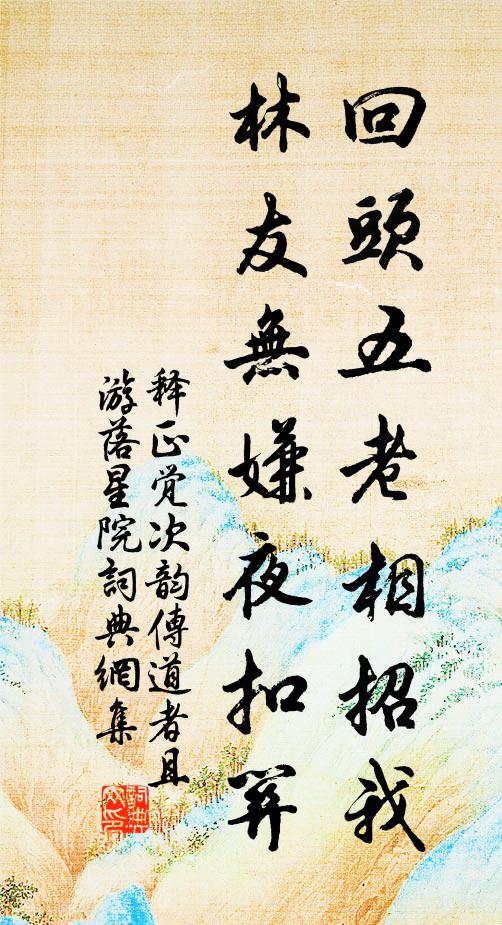 回頭五老相招我
林友無嫌夜扣關
释正觉次韵傳道者且
游落星院詞典網集